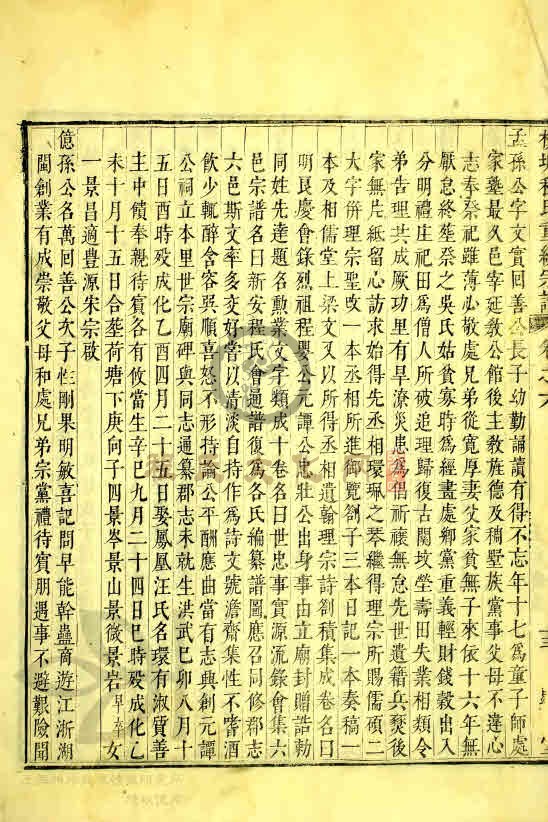 孟孫公字文實回善公長子幼勤誦讀有得不忘年十七為童子師處
家塾最久邑宰延教公館後主教旌德及稠墅族黨事父母不違心
志奉祭祀雖薄必敬處兄弟從寬厚妻父家貧無子來依十六年無
厭怠終葬祭之吳氏姑貧寡時為經畫處鄉黨重義輕財錢穀出入
分明禮庄祀田為僧人所破追理歸復古關坟塋壽田失業相類令
弟告理共成厥功里有旱潦災患為倡祈禳無怠先世遺籍兵燹後
家無片紙留心訪求始得先丞相環珮之琴繼得理宗所賜儒碩二
大字併理宗聖敕一本丞相所進御覽劄子三本日記一本奏稿一
本及相儒堂上梁文又以所得丞相遺翰理宗詩劄積集成卷名曰
明良慶會錄烈祖程嬰公元譚公忠壯公出身事由立廟封贈誥勅
同姓先達題名勲業文字類成十卷名曰世忠事實源流錄會集六
邑宗譜名曰新安程氏會通譜復為各氏編纂譜圖應召同修郡志
六邑斯文率多交好嘗以清淡自持作為詩文號澹齋集性不嗜酒
飲少輒醉含容吳順喜怒不形持論公平酬應曲當有志與創元譚
公祠立本里世宗廟碑與同志通纂郡志未就生洪武己卯八月十
五日酉時歿成化乙酉四月二十五日娶鳳凰汪氏名環有淑質善
主中饋奉親待賓各有攸當生辛巳九月二十四日巳時歿成化乙
未十月十五日合葬荷塘下庚向子四景岑景山景微景岩早卒女
一景昌適豐源朱宗啟
億孫公名萬回善公次子性剛果明敏喜記問早能幹蠱商遊江浙湖
閩創業有成崇敬父母和處兄弟宗黨禮待賓朋遇事不避艱險聞